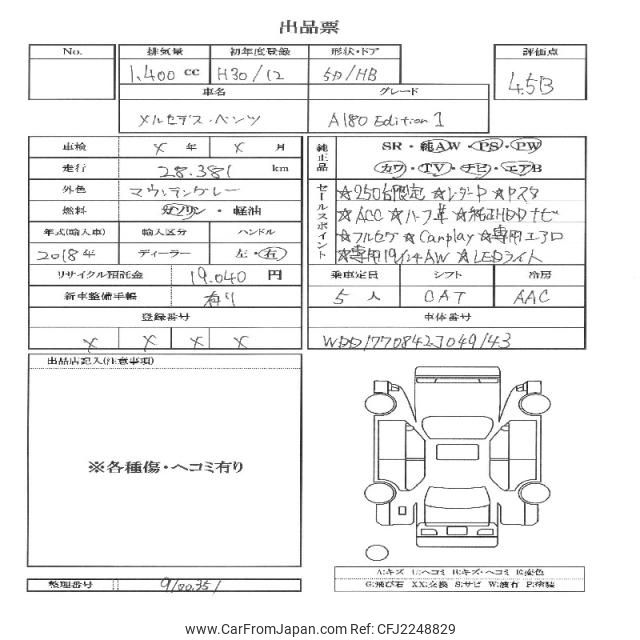 出品票
No. 排気量 初年度登録 形状・ドア 評価点
1,400 cc H30/12 5D/HB 4.5B
車名 グレード
メルセデス・ベンツ A180 Edition 1
車検 X 年 X 月 純正品 SR・純AW・PS・PW
走行 28.381 km カワ・TV・ナビ・エアB
外色 マウンテングレー セールスポイント ☆250台限定 ☆レダーP ☆Pスタ
燃料 ガソリン・軽油 ☆ACC ☆ハーフ革 ☆純正HDDナビ
年式(輸入車) 輸入区分 ハンドル ☆フルセグ ☆Carplay ☆専用エアロ
2018年 ディーラー 左・右 ☆専用19インチAW ☆LEDライト
リサイクル預託金 19.040 円 乗車定員 シフト 冷房
新車整備手帳 有り 5 人 CAT AAC
登録番号 車体番号
X X X X WDD1770842J049143
出品店記入(注意事項)
※各種傷・ヘコミ有り
A:キズ U:ヘコミ B:キズ・ヘコミ E:変色
G:飛び石 XX:交換 S:サビ W:波有 P:塗装
整理番号
www.CarFromJapan.com No.CFJ2248829